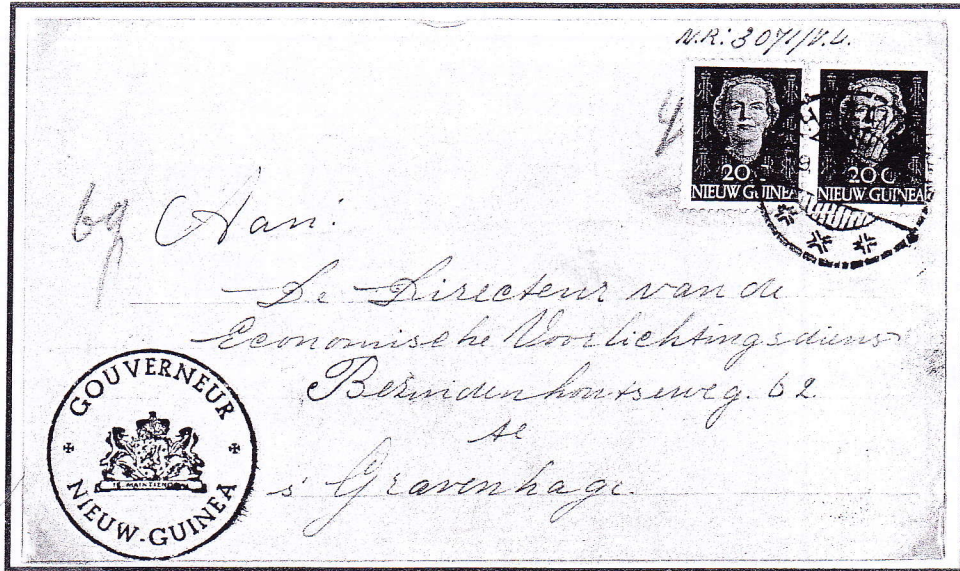 N.R: 3071/V.L.
20 C
NIEUW GUINEA
20 C
NIEUW GUINEA
Aan:
De Directeur van de
Economische Voorlichtingsdienst
Bezuidenhoutseweg. 62
te
s' Gravenhage.
GOUVERNEUR
JE MAINTIENDRAI
NIEUW-GUINEA